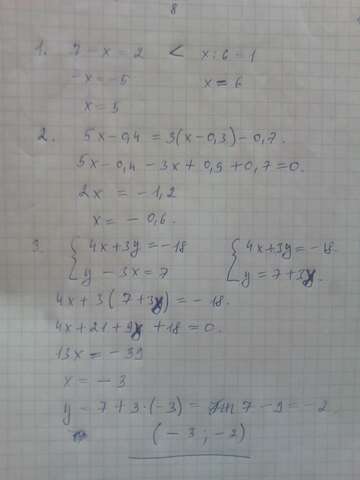 8
1. 7 - x = 2 < x : 6 = 1
-x = -5 x = 6
x = 5
2. 5x - 0,4 = 3(x - 0,3) - 0,7.
5x - 0,4 - 3x + 0,9 + 0,7 = 0.
2x = -1,2
x = -0,6.
3. { 4x + 3y = -18 { 4x + 3y = -18.
{ y - 3x = 7 { y = 7 + 3x.
4x + 3(7 + 3x) = -18.
4x + 21 + 9x + 18 = 0.
13x = -39
x = -3
y = 7 + 3·(-3) = 7 - 9 = -2
(-3; -2)